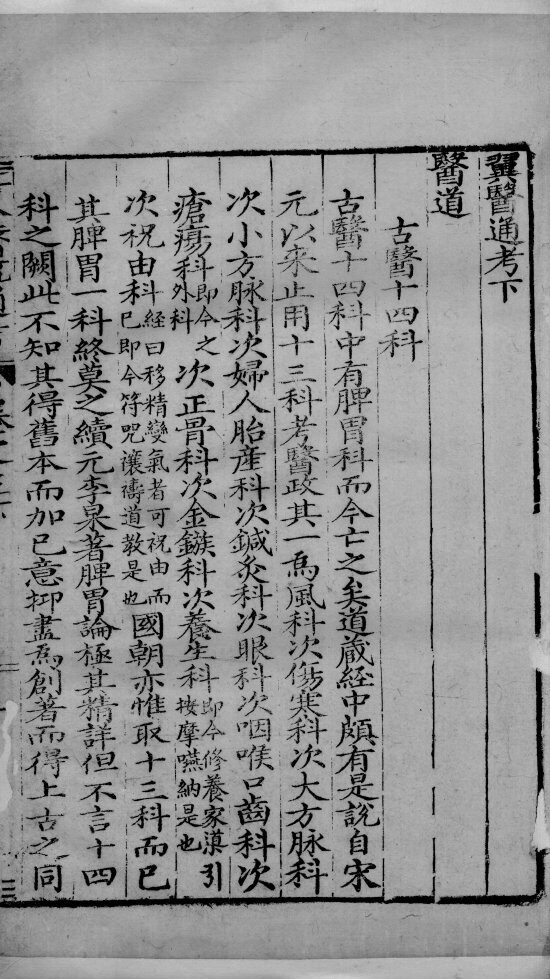 翼醫通考下
醫道
古醫十四科
古醫十四科中有脾胃科而今亡之矣道藏經中頗有是說自宋
元以來止用十三科考醫政其一為風科次傷寒科次大方脉科
次小方脉科次婦人胎產科次鍼灸科次眼科次咽喉口齒科次
瘡瘍科即今之外科次正骨科次金鏃科次養生科即今修養家滇引按摩嚥納是也
次祝由科經曰移精變氣者可祝由而已即今符咒禳禱道教是也國朝亦惟取十三科而已
其脾胃一科終莫之續元李杲著脾胃論極其精詳但不言十四
科之闕此不知其得舊本而加已意抑盡為創著而得上古之同